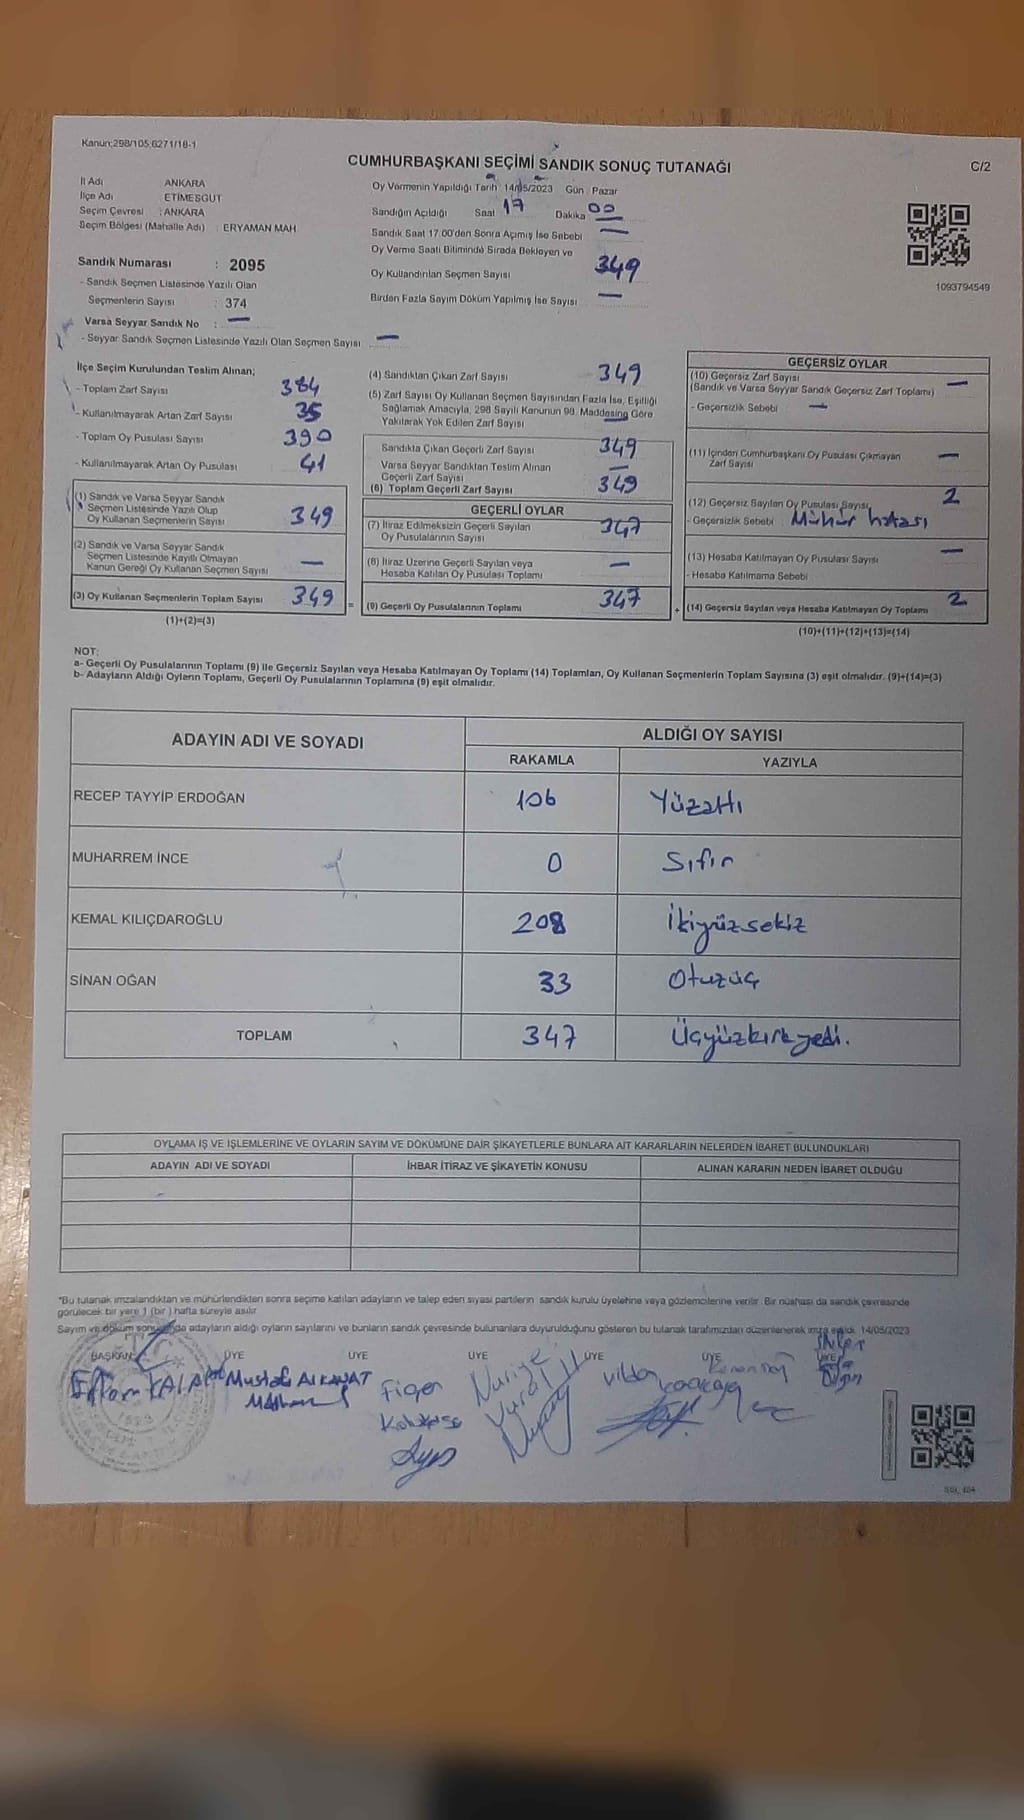 Kanun:298/105;6271/18-1
CUMHURBAŞKANI SEÇİMİ SANDIK SONUÇ TUTANAĞI
C/2
İl Adı ANKARA
İlçe Adı ETİMESGUT
Seçim Çevresi : ANKARA
Seçim Bölgesi (Mahalle Adı) : ERYAMAN MAH
Sandık Numarası : 2095
- Sandık Seçmen Listesinde Yazılı Olan
Seçmenlerin Sayısı : 374
Varsa Seyyar Sandık No : —
- Seyyar Sandık Seçmen Listesinde Yazılı Olan Seçmen Sayısı —
Oy Vermenin Yapıldığı Tarih 14/05/2023 Gün Pazar
Sandığın Açıldığı Saat 17 Dakika 00
Sandık Saat 17.00'den Sonra Açımış İse Sebebi —
Oy Verme Saati Bitiminde Sırada Bekleyen ve
Oy Kullandırılan Seçmen Sayısı 349
Birden Fazla Sayım Döküm Yapılmış İse Sayısı —
1093794549
İlçe Seçim Kurulundan Teslim Alınan;
- Toplam Zarf Sayısı 384
- Kullanılmayarak Artan Zarf Sayısı 35
- Toplam Oy Pusulası Sayısı 390
- Kullanılmayarak Artan Oy Pusulası 41
(1) Sandık ve Varsa Seyyar Sandık
Seçmen Listesinde Yazılı Olup
Oy Kullanan Seçmenlerin Sayısı 349
(2) Sandık ve Varsa Seyyar Sandık
Seçmen Listesinde Kayıtlı Olmayan
Kanun Gereği Oy Kullanan Seçmen Sayısı —
(3) Oy Kullanan Seçmenlerin Toplam Sayısı 349 =
(1)+(2)=(3)
(4) Sandıktan Çıkan Zarf Sayısı 349
(5) Zarf Sayısı Oy Kullanan Seçmen Sayısından Fazla İse, Eşitliği
Sağlamak Amacıyla, 298 Sayılı Kanunun 98. Maddesine Göre
Yakılarak Yok Edilen Zarf Sayısı —
Sandıkta Çıkan Geçerli Zarf Sayısı 349
Varsa Seyyar Sandıktan Teslim Alınan
Geçerli Zarf Sayısı —
(6) Toplam Geçerli Zarf Sayısı 349
GEÇERLİ OYLAR
(7) İtiraz Edilmeksizin Geçerli Sayılan
Oy Pusulalarının Sayısı 347
(8) İtiraz Üzerine Geçerli Sayılan veya
Hesaba Katılan Oy Pusulası Toplamı —
(9) Geçerli Oy Pusulalarının Toplamı 347 +
GEÇERSİZ OYLAR
(10) Geçersiz Zarf Sayısı
(Sandık ve Varsa Seyyar Sandık Geçersiz Zarf Toplamı) —
- Geçersizlik Sebebi —
(11) İçinden Cumhurbaşkanı Oy Pusulası Çıkmayan
Zarf Sayısı —
(12) Geçersiz Sayılan Oy Pusulası Sayısı 2
- Geçersizlik Sebebi Mühür hatası
(13) Hesaba Katılmayan Oy Pusulası Sayısı —
- Hesaba Katılmama Sebebi
(14) Geçersiz Sayılan veya Hesaba Katılmayan Oy Toplamı 2
(10)+(11)+(12)+(13)=(14)
NOT:
a- Geçerli Oy Pusulalarının Toplamı (9) ile Geçersiz Sayılan veya Hesaba Katılmayan Oy Toplamı (14) Toplamları, Oy Kullanan Seçmenlerin Toplam Sayısına (3) eşit olmalıdır. (9)+(14)=(3)
b- Adayların Aldığı Oyların Toplamı, Geçerli Oy Pusulalarının Toplamına (9) eşit olmalıdır.
ADAYIN ADI VE SOYADI
ALDIĞI OY SAYISI
RAKAMLA YAZIYLA
RECEP TAYYİP ERDOĞAN 106 Yüzaltı
MUHARREM İNCE 0 Sıfır
KEMAL KILIÇDAROĞLU 208 İkiyüzsekiz
SİNAN OĞAN 33 Otuzüç
TOPLAM 347 Üçyüzkırkyedi.
OYLAMA İŞ VE İŞLEMLERİNE VE OYLARIN SAYIM VE DÖKÜMÜNE DAİR ŞİKAYETLERLE BUNLARA AİT KARARLARIN NELERDEN İBARET BULUNDUKLARI
ADAYIN ADI VE SOYADI İHBAR İTİRAZ VE ŞİKAYETİN KONUSU ALINAN KARARIN NEDEN İBARET OLDUĞU
*Bu tutanak imzalandıktan ve mühürlendikten sonra seçime katılan adayların ve talep eden siyasi partilerin sandık kurulu üyelerine veya gözlemcilerine verilir. Bir nüshası da sandık çevresinde
görülecek bir yere 1 (bir ) hafta süreyle asılır
Sayım ve döküm sonucunda adayların aldığı oyların sayılarını ve bunların sandık çevresinde bulunanlara duyurulduğunu gösteren bu tutanak tarafımızdan düzenlenerek imza edildi. 14/05/2023
BAŞKAN ÜYE ÜYE ÜYE ÜYE ÜYE ÜYE
Mustafa ALKANAT
Figen Nuriye Vildan